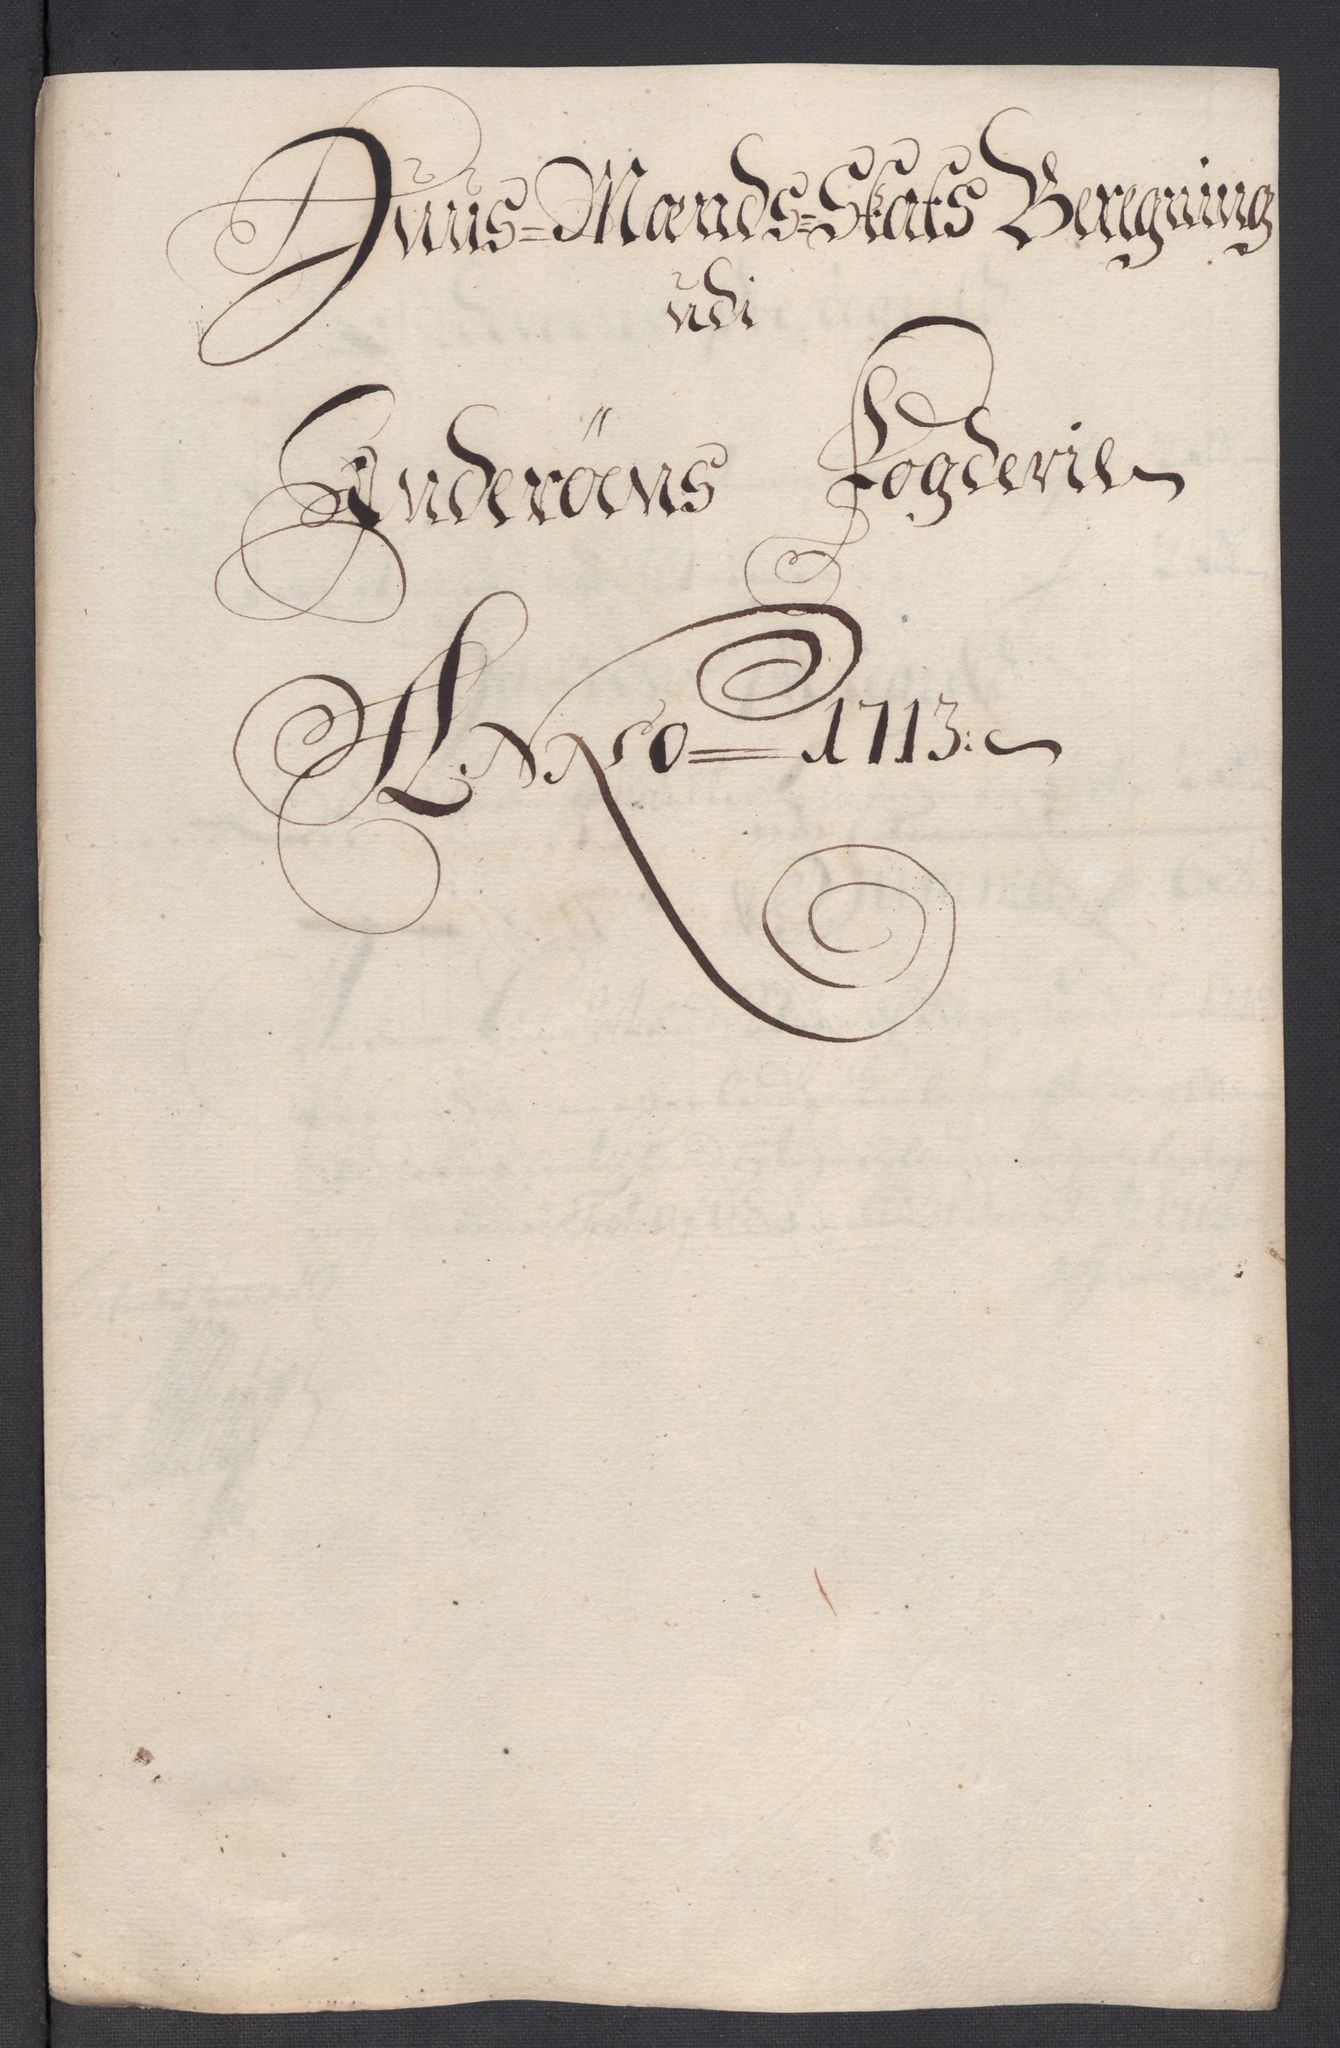 Huus-Mænds-Skats Beregning
udi
Inderöens Fogderie
Anno 1713.